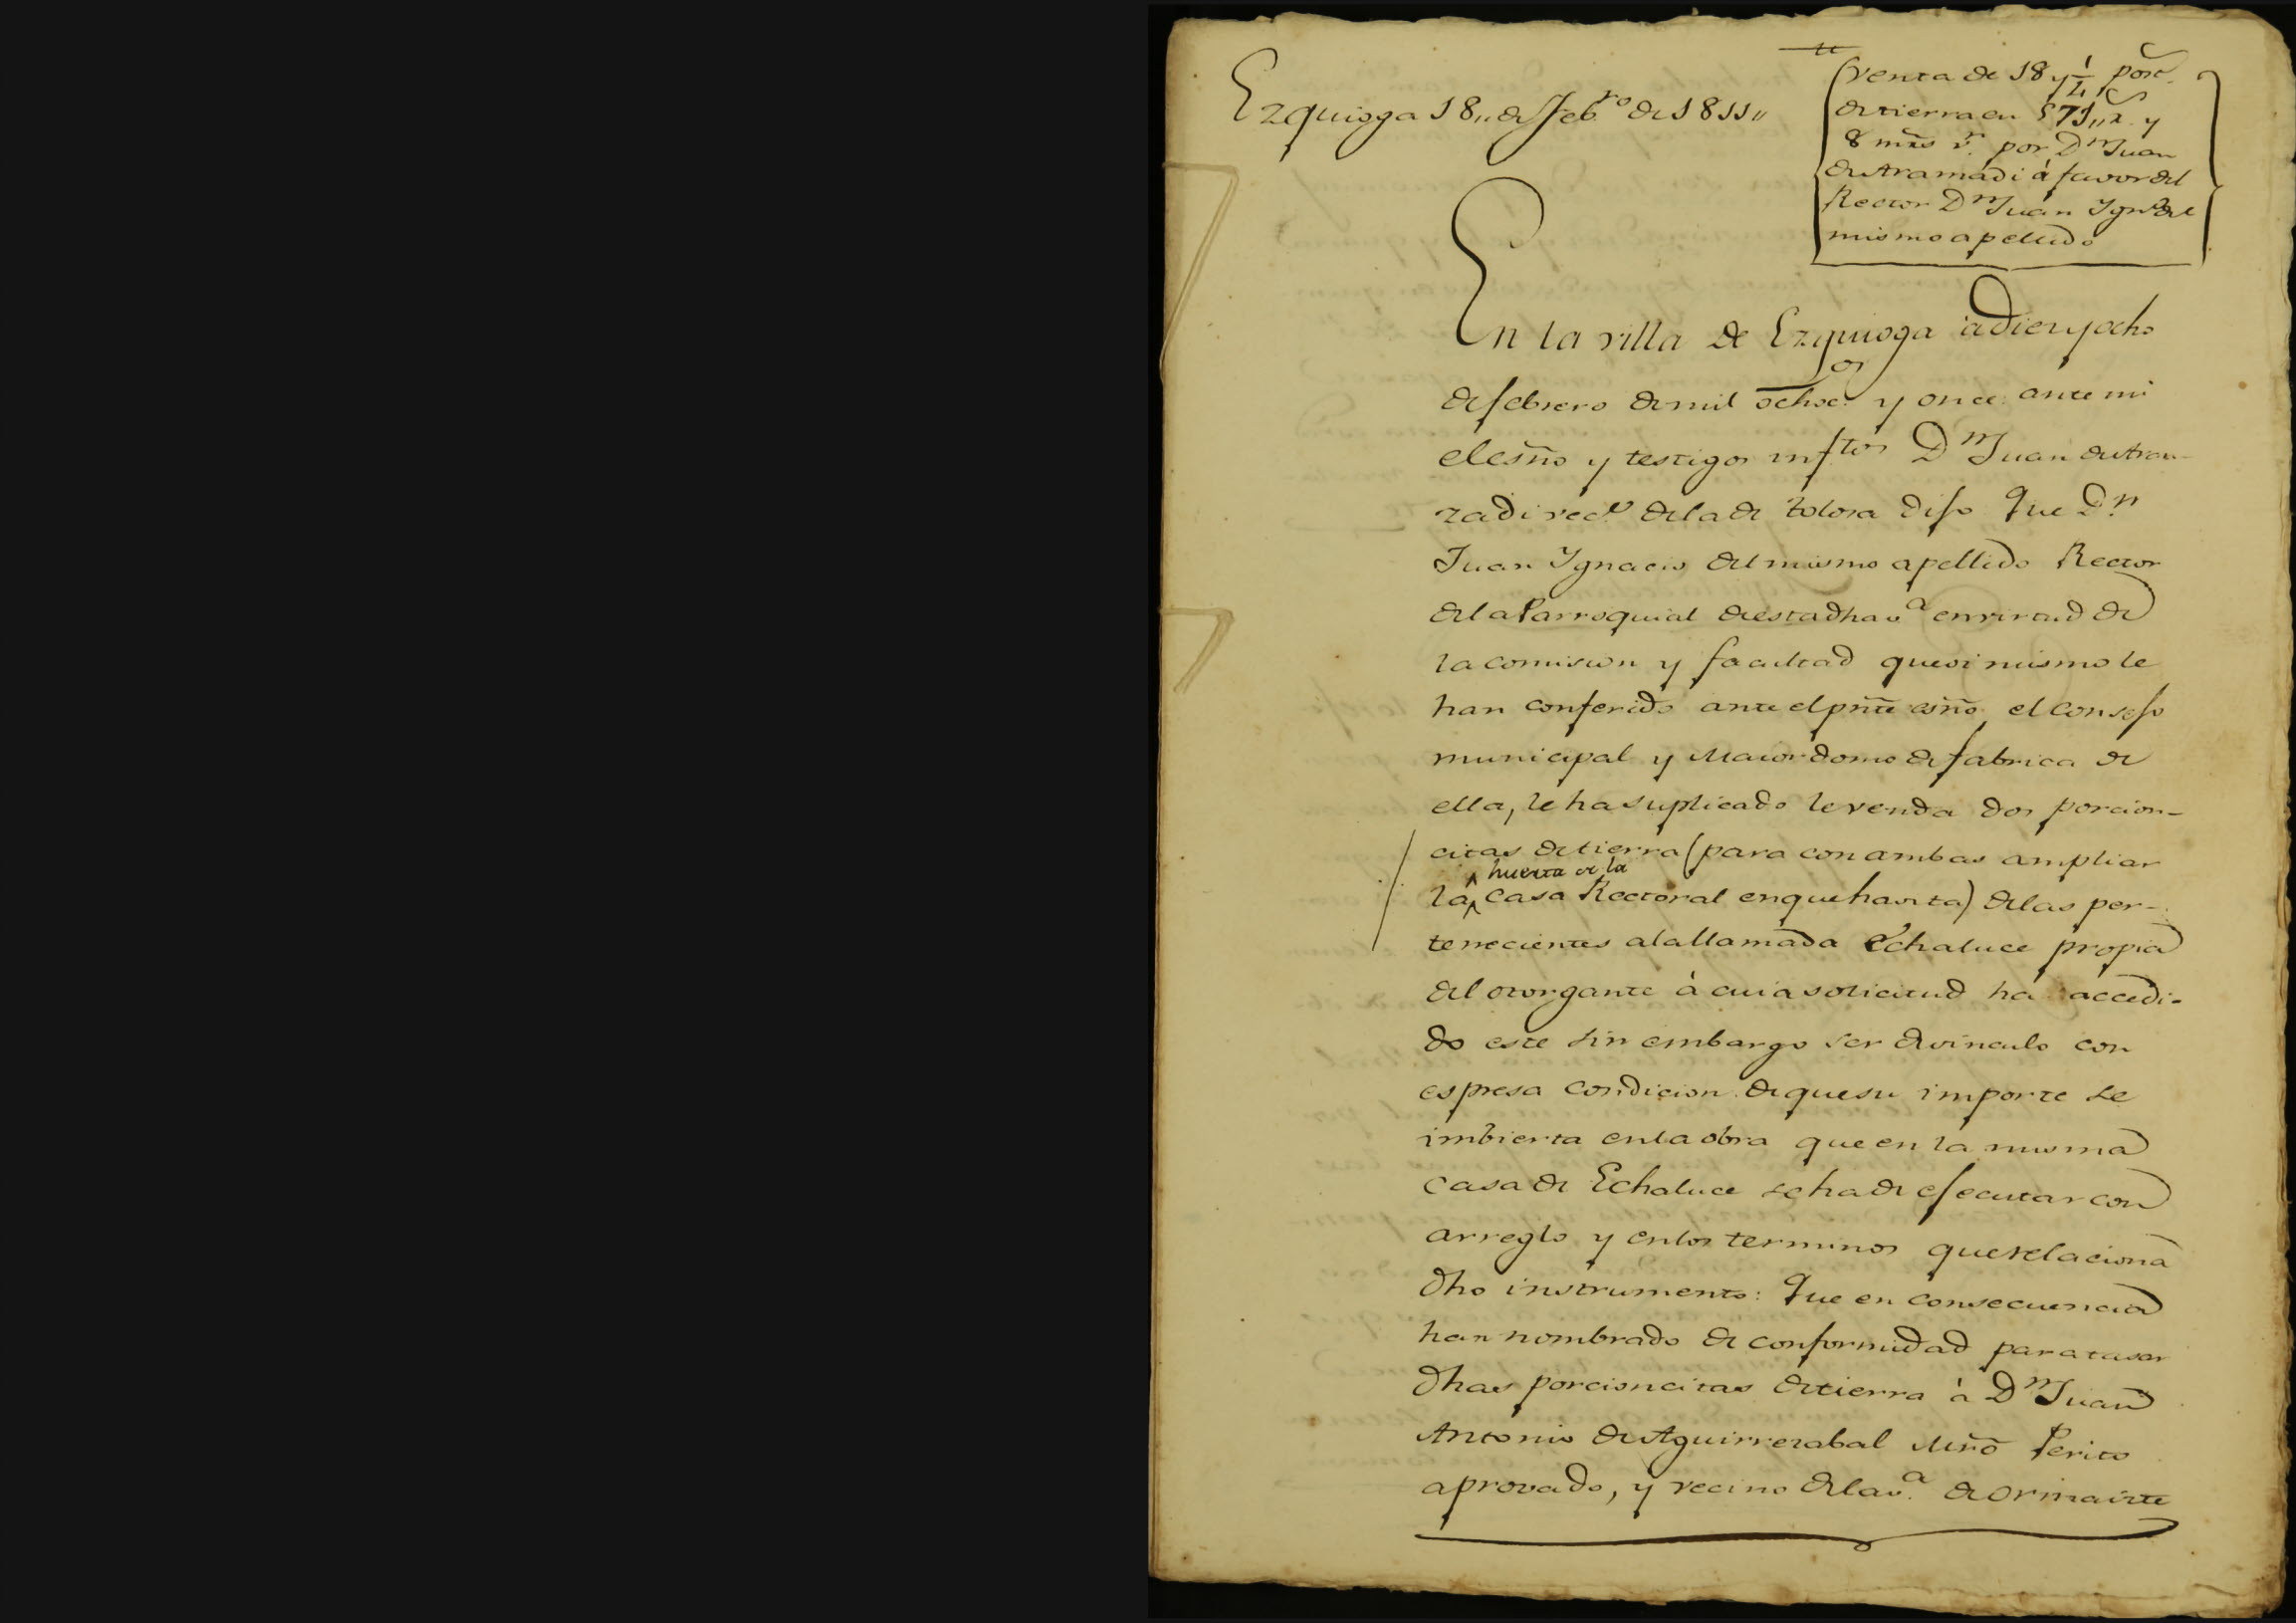 Ezquioga 18,, de Feb.ro de 1811,,
Venta de 18 y 1/2 post.s
de tierra en 571,, r.s y
8 mrs v.n por D.n Juan
de Aramadi á favor del
Rector D.n Juan Ygn.o del
mismo apellido
En la villa de Ezquioga á diez y ocho
de febrero de mil ochoc.os y once ante mi
el esño y testigos inftos D.n Juan de Aran-
zadi vec.o de la de Tolosa dijo Que D.n
Juan Ygnacio del mismo apellido Rector
de la Parroquial de esta dha v.a en virtud de
la comision y facultad que oi mismo le
han conferido ante el pnte esño, el Consejo
municipal y Maiordomo de fabrica de
ella, le ha suplicado le venda dos porcion-
citas de tierra (para con ambas ampliar
huerta de la
la casa Rectoral en que havita) de las per-
tenecientes a la llamada Echaluce propia
del otorgante à cuia solicitud ha accedi-
do este sin embargo ser de vinculo con
espresa condicion de que su importe se
imbierta en la obra que en la misma
casa de Echaluce se ha de ejecutar con
arreglo y en los terminos que relaciona
dho instrumento: Que en consecuencia
han nombrado de conformidad para tasar
dhas porcioncitas de tierra à D.n Juan
Antonio de Aguirrezabal Mrõ Perito
aprovado, y vecino de la v.a de Ormaizte